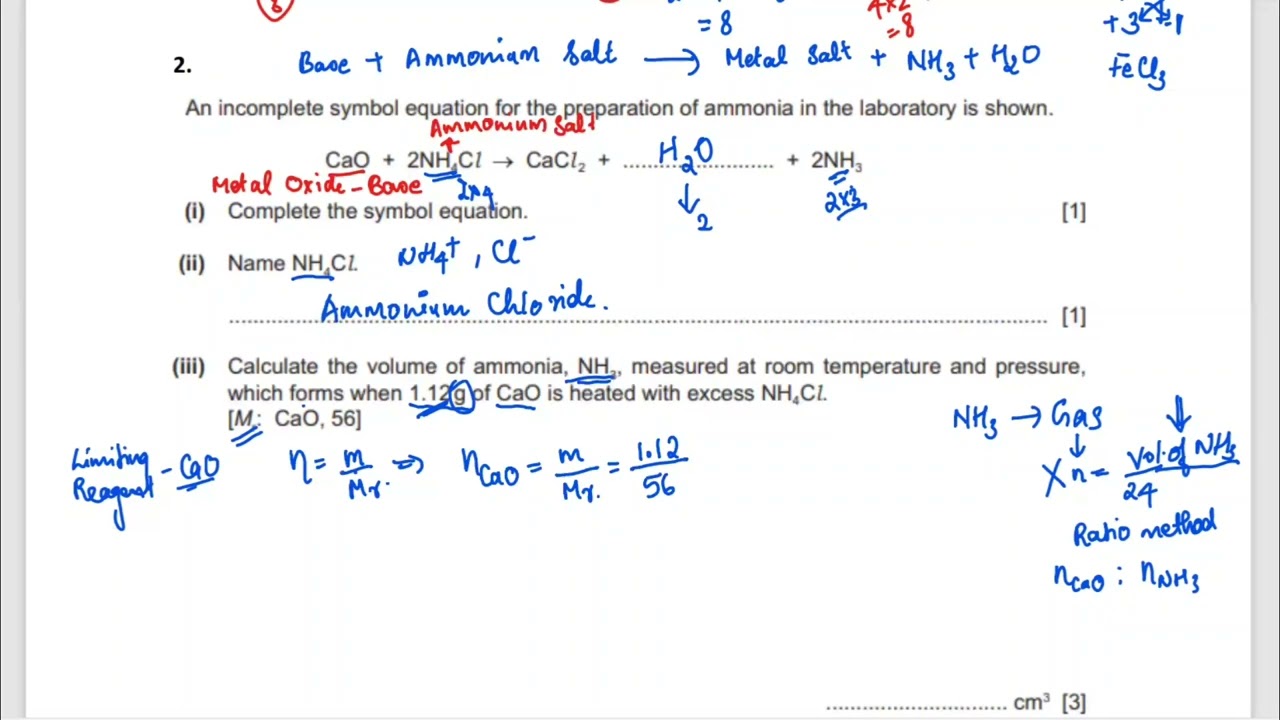 = 8
4×2
= 8
+3 -1
FeCl3
2.
Base + Ammonium Salt → Metal Salt + NH3 + H2O
An incomplete symbol equation for the preparation of ammonia in the laboratory is shown.
Ammonium Salt
CaO + 2NH4Cl → CaCl2 + ........ H2O ........ + 2NH3
Metal Oxide - Base
2×4
2
2×3
(i) Complete the symbol equation. [1]
(ii) Name NH4Cl. NH4+, Cl-
Ammonium Chloride.
[1]
(iii) Calculate the volume of ammonia, NH3, measured at room temperature and pressure,
which forms when 1.12g of CaO is heated with excess NH4Cl.
[Mr: CaO, 56]
Limiting Reagent - CaO
n = m/Mr. ⇒ nCaO = m/Mr. = 1.12/56
NH3 → Gas
X n = Vol. of NH3/24
Ratio method
nCaO : nNH3
........ cm3 [3]